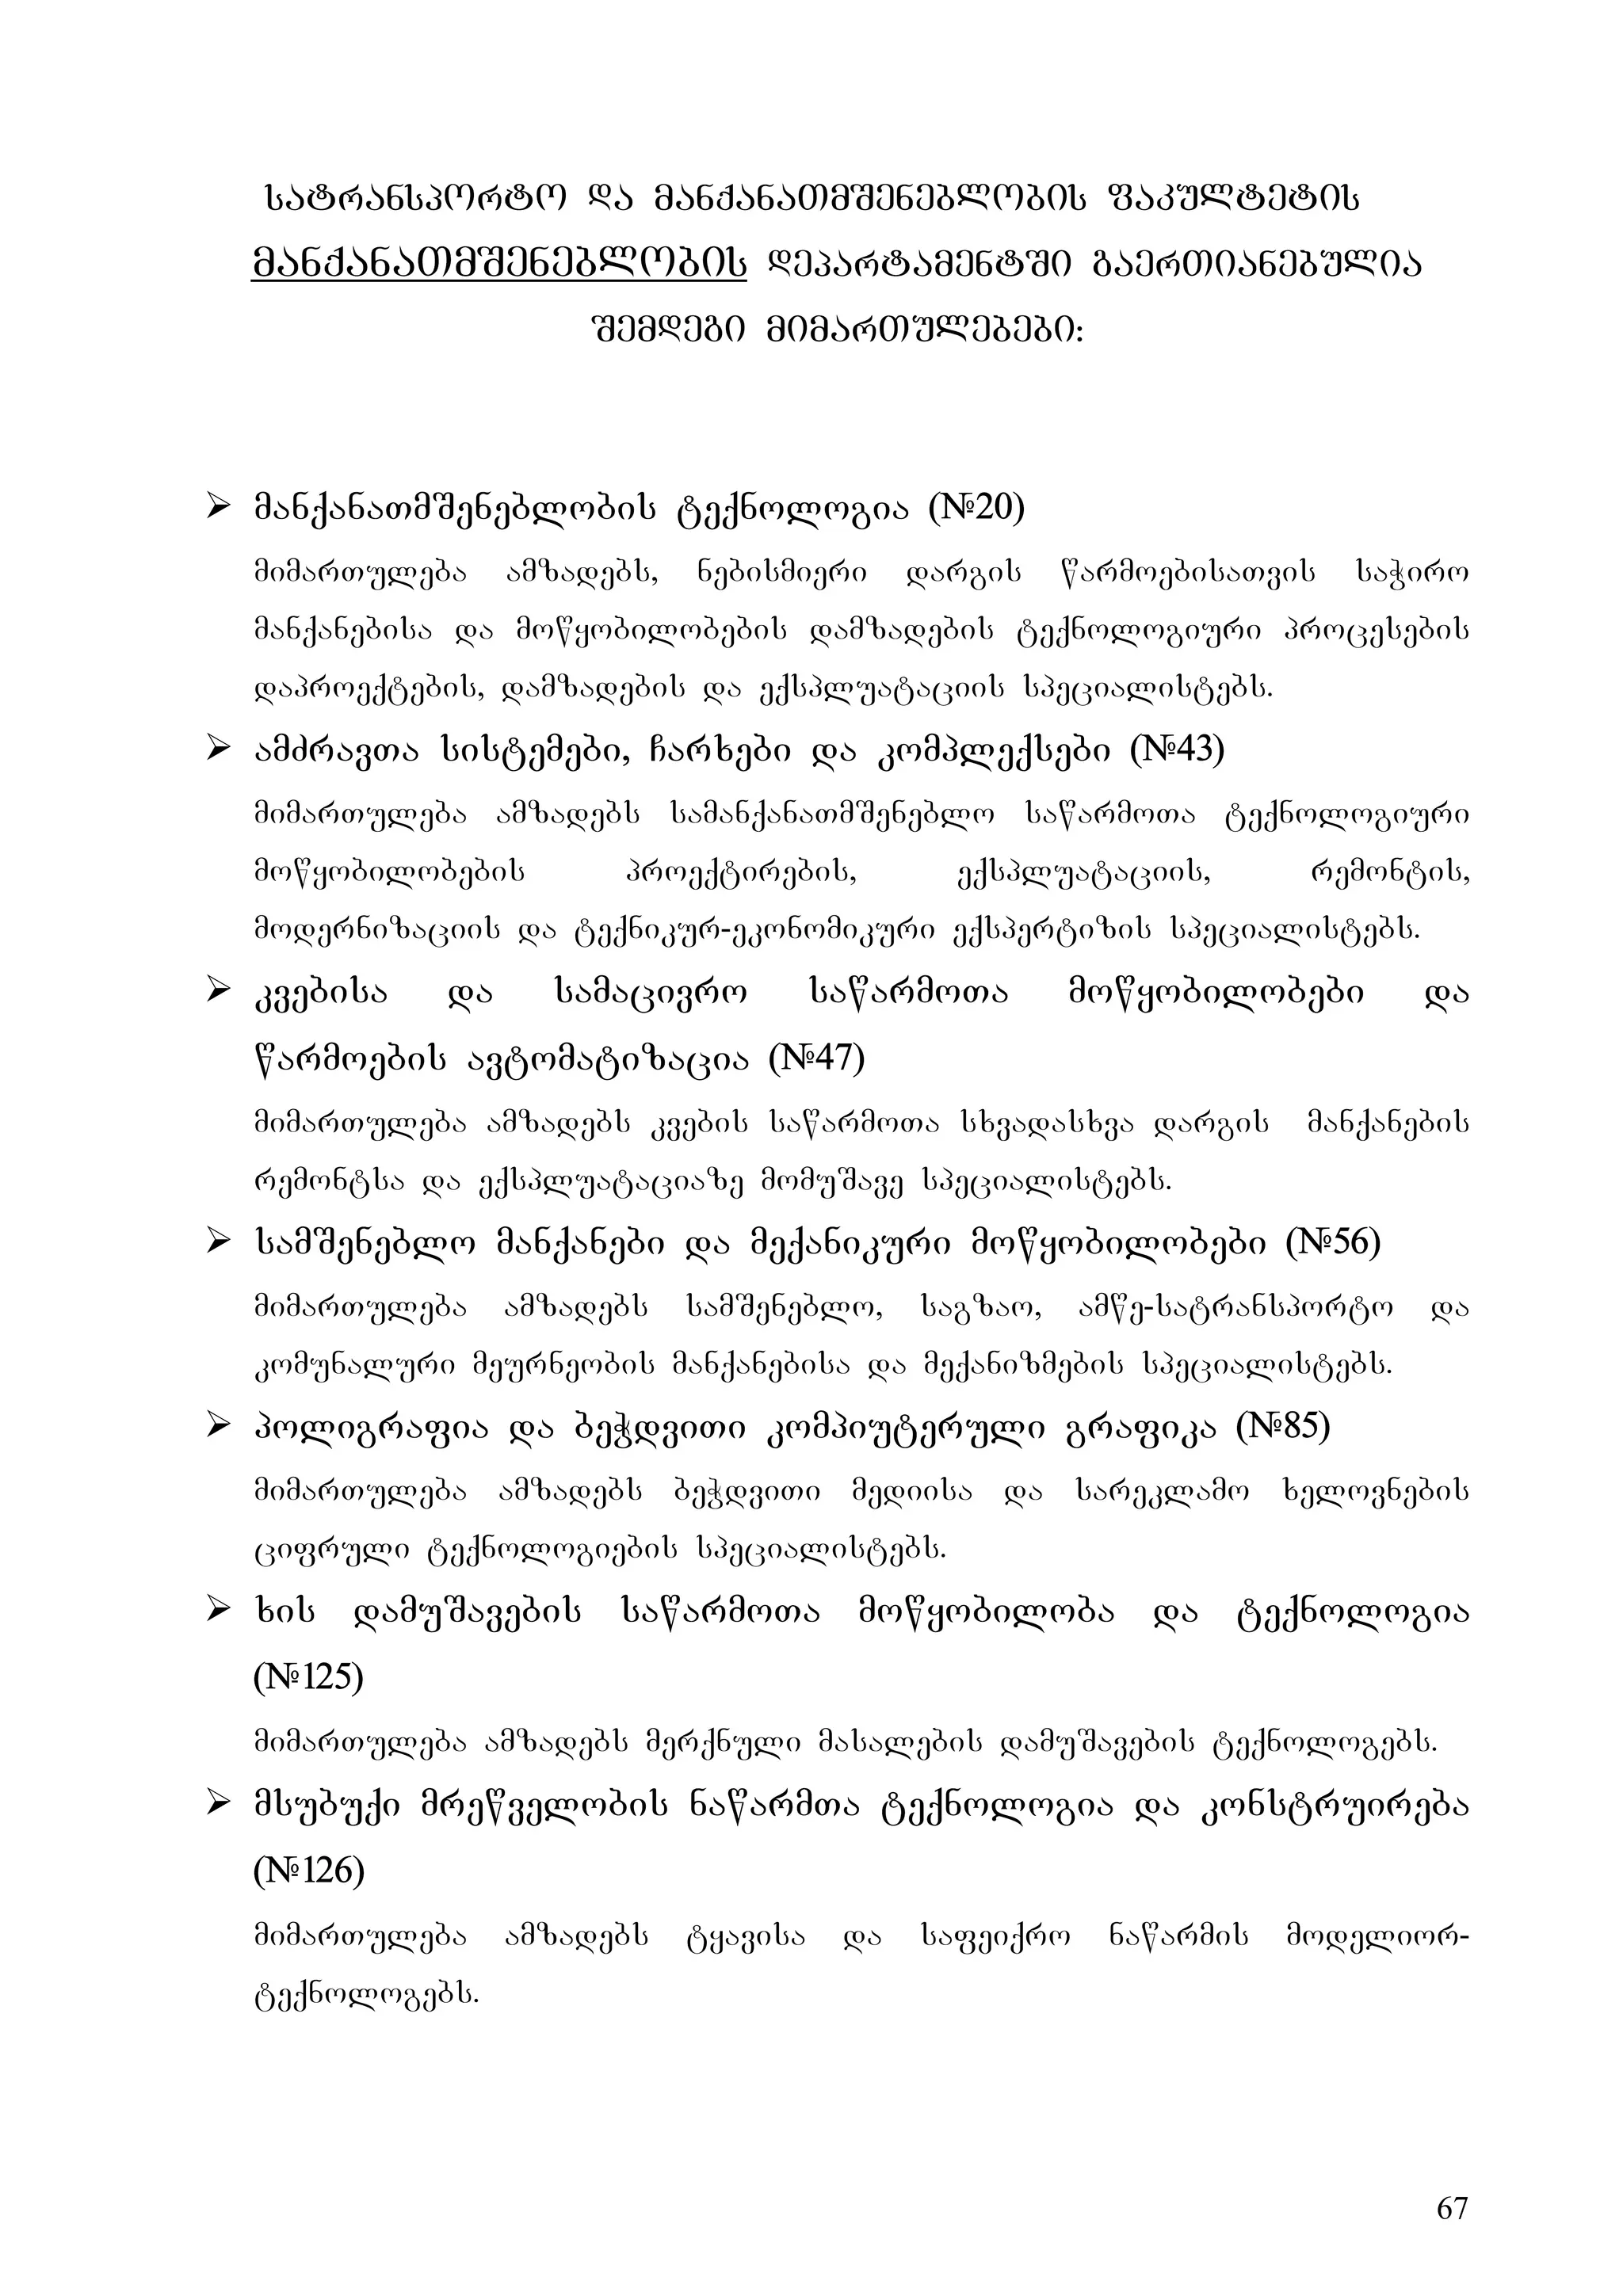 სატრანსპორტო და მანქანათმშენებლობის ფაკულტეტის
მანქანათმშენებლობის დეპარტამენტში გაერთიანებულია
შემდეგი მიმართულებები:
➢ მანქანათმშენებლობის ტექნოლოგია (№20)
მიმართულება ამზადებს, ნებისმიერი დარგის წარმოებისათვის საჭირო
მანქანებისა და მოწყობილობების დამზადების ტექნოლოგიური პროცესების
დაპროექტების, დამზადების და ექსპლუატაციის სპეციალისტებს.
➢ ამძრავთა სისტემები, ჩარხები და კომპლექსები (№43)
მიმართულება ამზადებს სამანქანათმშენებლო საწარმოთა ტექნოლოგიური
მოწყობილობების პროექტირების, ექსპლუატაციის, რემონტის,
მოდერნიზაციის და ტექნიკურ-ეკონომიკური ექსპერტიზის სპეციალისტებს.
➢ კვებისა და სამაცივრო საწარმოთა მოწყობილობები და
წარმოების ავტომატიზაცია (№47)
მიმართულება ამზადებს კვების საწარმოთა სხვადასხვა დარგის მანქანების
რემონტსა და ექსპლუატაციაზე მომუშავე სპეციალისტებს.
➢ სამშენებლო მანქანები და მექანიკური მოწყობილობები (№56)
მიმართულება ამზადებს სამშენებლო, საგზაო, ამწე-სატრანსპორტო და
კომუნალური მეურნეობის მანქანებისა და მექანიზმების სპეციალისტებს.
➢ პოლიგრაფია და ბეჭდვითი კომპიუტერული გრაფიკა (№85)
მიმართულება ამზადებს ბეჭდვითი მედიისა და სარეკლამო ხელოვნების
ციფრული ტექნოლოგიების სპეციალისტებს.
➢ ხის დამუშავების საწარმოთა მოწყობილობა და ტექნოლოგია
(№125)
მიმართულება ამზადებს მერქნული მასალების დამუშავების ტექნოლოგებს.
➢ მსუბუქი მრეწველობის ნაწარმთა ტექნოლოგია და კონსტრუირება
(№126)
მიმართულება ამზადებს ტყავისა და საფეიქრო ნაწარმის მოდელიორ-
ტექნოლოგებს.
67